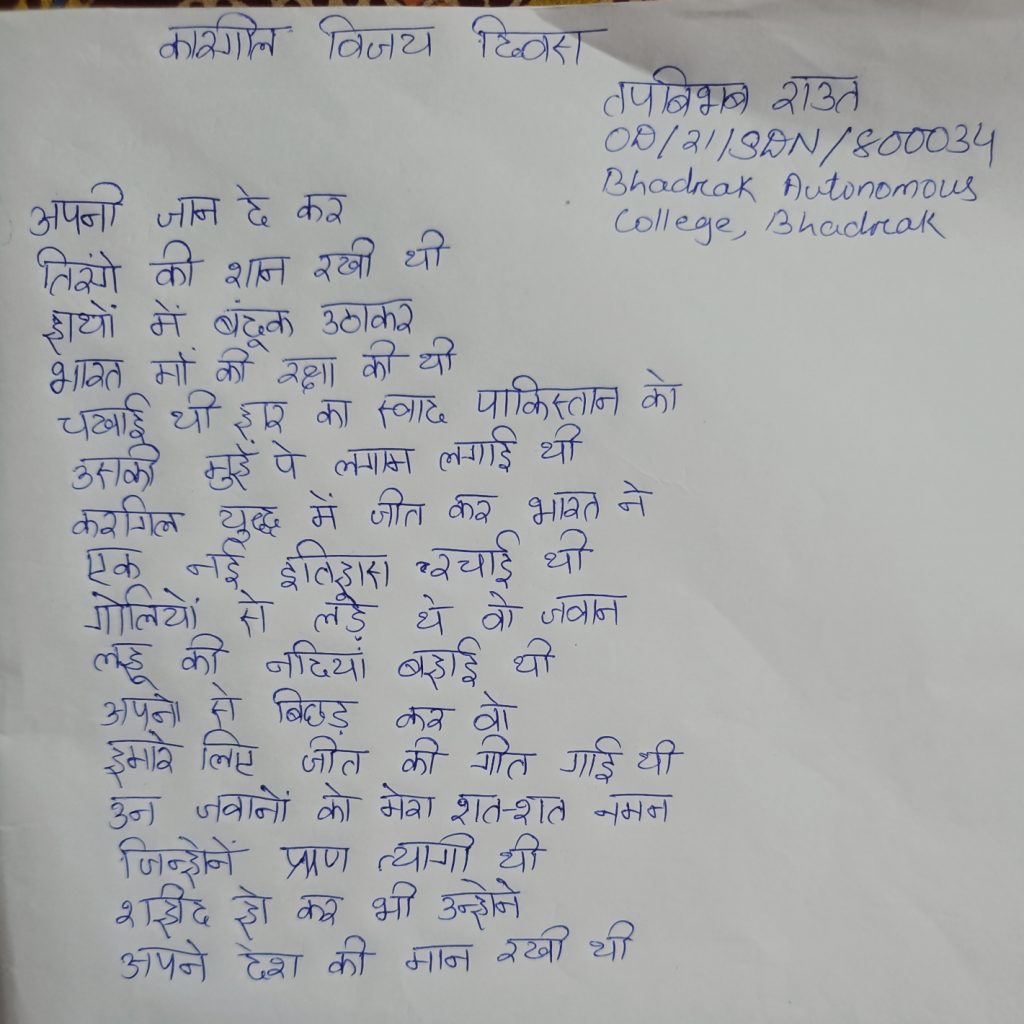 कारगील विजय दिवस
तपबिभब राउत
OD/21/SDN/800034
Bhadrak Autonomous
College, Bhadrak
अपनी जान दे कर
तिरंगे की शान रखी थी
हाथों में बंदूक उठाकर
भारत माँ की रक्षा की थी
चखाई थी हार का स्वाद पाकिस्तान को
उसकी मुहँ पे लगाम लगाई थी
करगिल युद्ध में जीत कर भारत ने
एक नई इतिहास रचाई थी
गोलियों से लड़े थे वो जवान
लहू की नदियां बहाई थी
अपनो से बिछड़ कर वो
हमारे लिए जीत की गीत गाई थी
उन जवानों को मेरा शत-शत नमन
जिन्होनें प्राण त्यागी थी
शहीद हो कर भी उन्होने
अपने देश की मान रखी थी